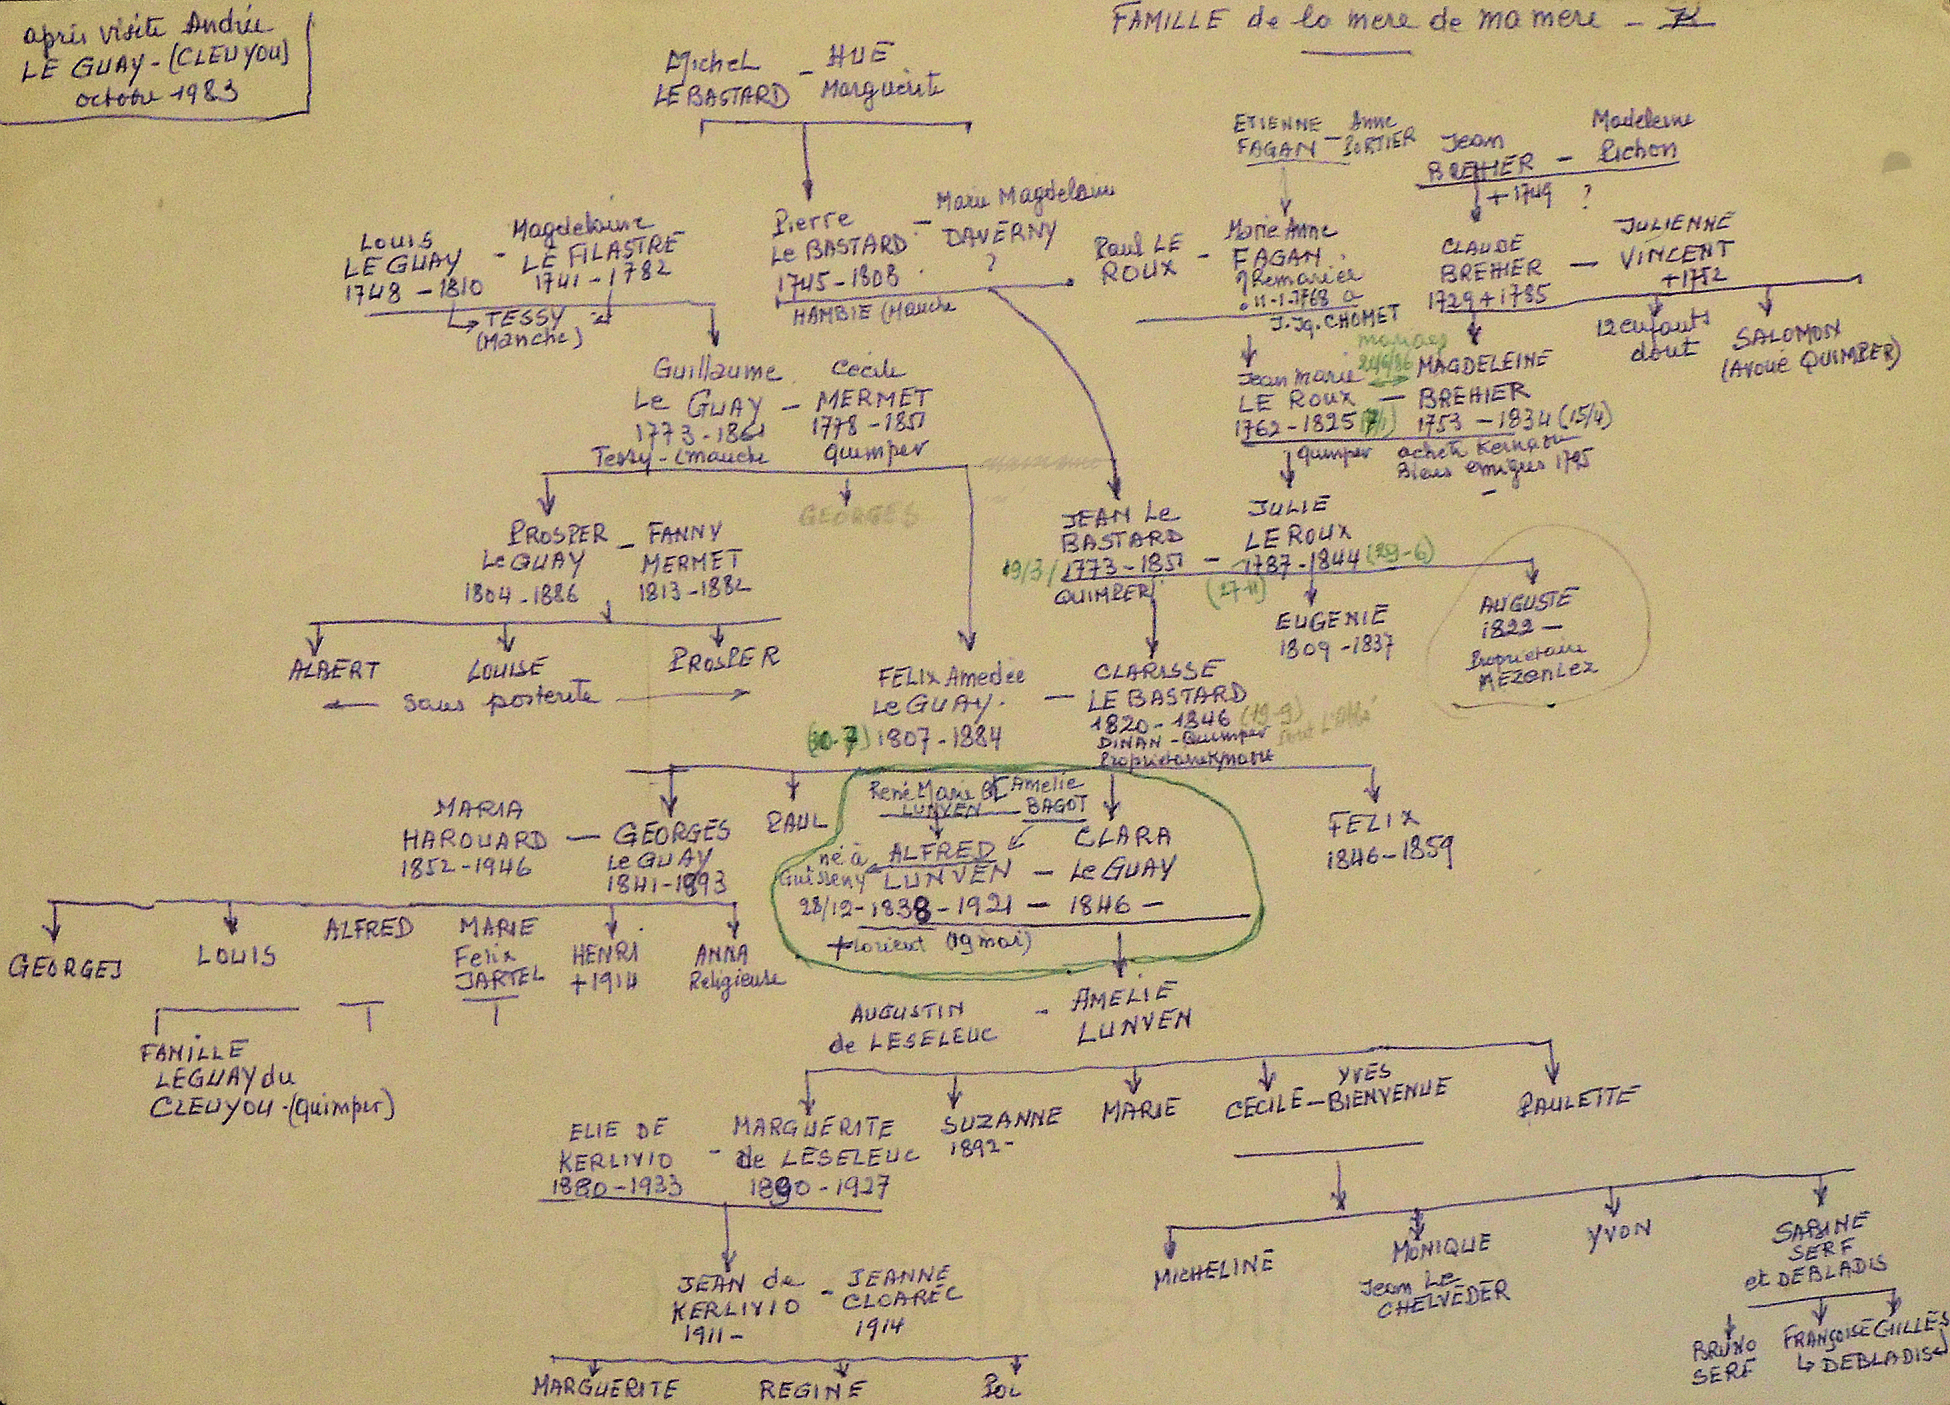 après visite Andrée
LE GUAY - (CLEUYOU)
octobre 1983
FAMILLE de la mere de ma mere -
Michel
LE BASTARD - HUE
Marguerite
ETIENNE
FAGAN - Anne
PORTIER
Jean
BREHIER - Madeleine
Pichon
+ 1749 ?
Louis
LE GUAY
1748 - 1810
- Magdelaine
LE FILASTRE
1741 - 1782
TESSY
(Manche)
Pierre
Le BASTARD
1745 - 1808
- Marie Magdelaine
DAVERNY
?
HAMBIE (Manche
Paul LE
ROUX -
Marie Anne
FAGAN
Remariée
11-1-1768 à
J. Jq. CHOMET
CLAUDE
BREHIER
1729 + 1785
- JULIENNE
VINCENT
+ 1752
12 enfants
dont
SALOMON
(Avoué QUIMPER)
Guillaume
Le GUAY
Tessy - (manche
- Cécile
MERMET
1778 - 1851
Quimper
mariage
Jean Marie
LE ROUX
1762 - 1825
Quimper
- MAGDELEINE
BREHIER
1753 - 1834 (15/4)
Biens émigrés 1795
PROSPER
Le GUAY
1804 - 1886
- FANNY
MERMET
1813 - 1882
GEORGES
JEAN Le
BASTARD
19/3/ 1773 - 1851
QUIMPER
- JULIE
LE ROUX
1787 - 1844 (29-6)
(27-11)
EUGENIE
1809 - 1837
AUGUSTE
1822 -
Propriétaire
MEZANLEZ
ALBERT
LOUISE
PROSPER
Sans posterité
FELIX Amedée
Le GUAY
1807 - 1884
- CLARISSE
LE BASTARD
1820 - 1846 (19-9)
DINAN - Quimper
MARIA
HAROUARD
1852 - 1946
- GEORGES
Le GUAY
1841 - 1893
PAUL
René Marie
LUNVEN - Amelie
BAGOT
né à
Guisseny
ALFRED
LUNVEN
28/12 - 1838 - 1921
+ Lorient (19 mai)
- CLARA
Le GUAY
- 1846 -
FELIX
1846 - 1859
GEORGES
LOUIS
ALFRED
MARIE
Felix
JARTEL
HENRI
+ 1914
ANNA
Religieuse
FAMILLE
LEGUAY du
CLEUYOU - (Quimper)
AUGUSTIN
de LESELEUC
- AMELIE
LUNVEN
ELIE DE
KERLIVIO
1880 - 1933
- MARGUERITE
de LESELEUC
1890 - 1927
SUZANNE
1892 -
MARIE
CECILE - YVES
BIENVENUE
PAULETTE
JEAN de
KERLIVIO
1911 -
- JEANNE
CLOAREC
1914
MICHELINE
MONIQUE
Jean Le
CHELVEDER
YVON
SABINE
SERF
et DEBLADIS
BRUNO
SERF
FRANÇOISE GILLES
DEBLADIS
MARGUERITE
REGINE
POL